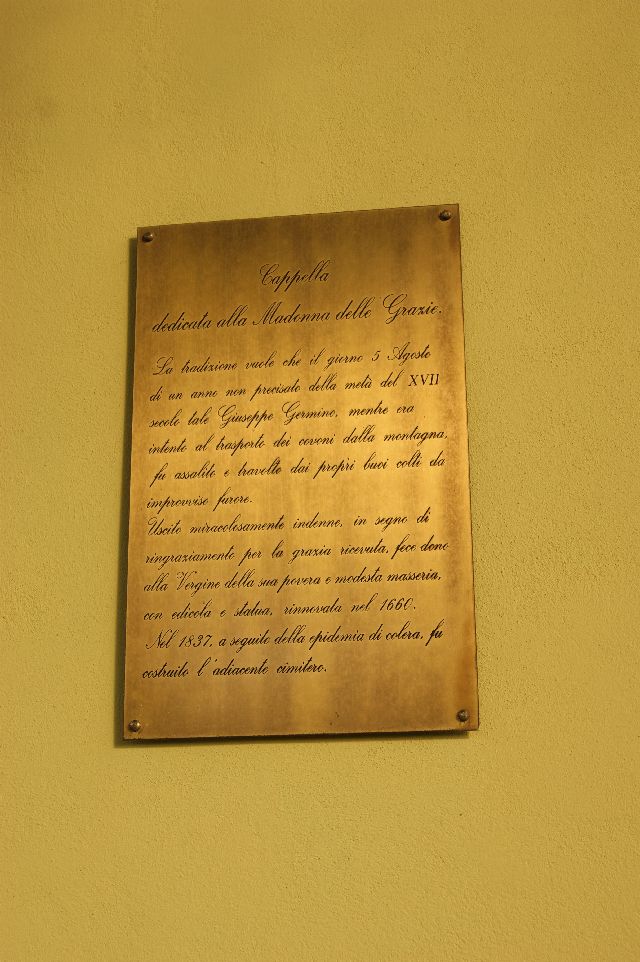 Cappella
dedicata alla Madonna delle Grazie.
La tradizione vuole che il giorno 5 Agosto
di un anno non precisato della metà del XVII
secolo tale Giuseppe Germino, mentre era
intento al trasporto dei covoni dalla montagna,
fu assalito e travolto dai propri buoi colti da
improvviso furore.
Uscito miracolosamente indenne, in segno di
ringraziamento per la grazia ricevuta, fece dono
alla Vergine della sua povera e modesta masseria,
con edicola e statua, rinnovata nel 1660.
Nel 1837, a seguito della epidemia di colera, fu
costruito l'adiacente cimitero.